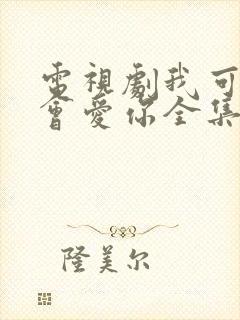 電視劇我可
會愛你全集
隆美尔